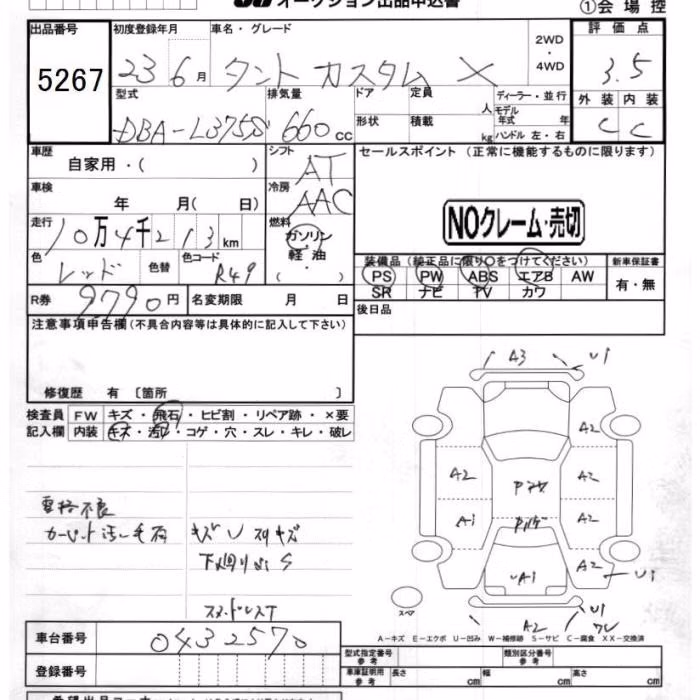 オークション出品申込書
①会場控
出品番号
5267
初度登録年月
23 6月
車名・グレード
タント カスタム X
2WD
・
4WD
評価点
3.5
型式
DBA-L375S
排気量
660 cc
ドア
定員
人
形状
積載
kg
ディーラー・並行
モデル年式 年
ハンドル 左・右
外装 内装
C C
車歴
自家用・( )
シフト
AT
セールスポイント (正常に機能するものに限ります)
車検
年 月( 日)
冷房
AAC
NOクレーム・売切
走行
10万4千213km
燃料
ガソリン
・
軽油
( )
色
レッド
色替
色コード
R49
装備品 (純正品に限り○をつけてください)
PS PW ABS エアB AW
SR ナビ TV カワ
新車保証書
有・無
R券
9790円
名変期限 月 日
後日品
注意事項申告欄 (不具合内容等は具体的に記入して下さい)
修復歴 有 〔箇所 〕
検査員
記入欄
FW キズ・飛石・ヒビ割・リペア跡・×要
内装 キズ・汚れ・コゲ・穴・スレ・キレ・破レ
A3 U1
A2 A2
A1 A2
UA1 A2
U1
A2 U1
スペア
カーペット汚レ
キズ U
下廻り S
A-キズ E-エクボ U-凹み W-補修跡 S-サビ C-腐食 XX-交換済
車台番号
0432570
登録番号
型式指定番号
参考
類別区分番号
参考
車庫証明用
参考
長さ cm
幅 cm
高さ cm
希望出品コーナー